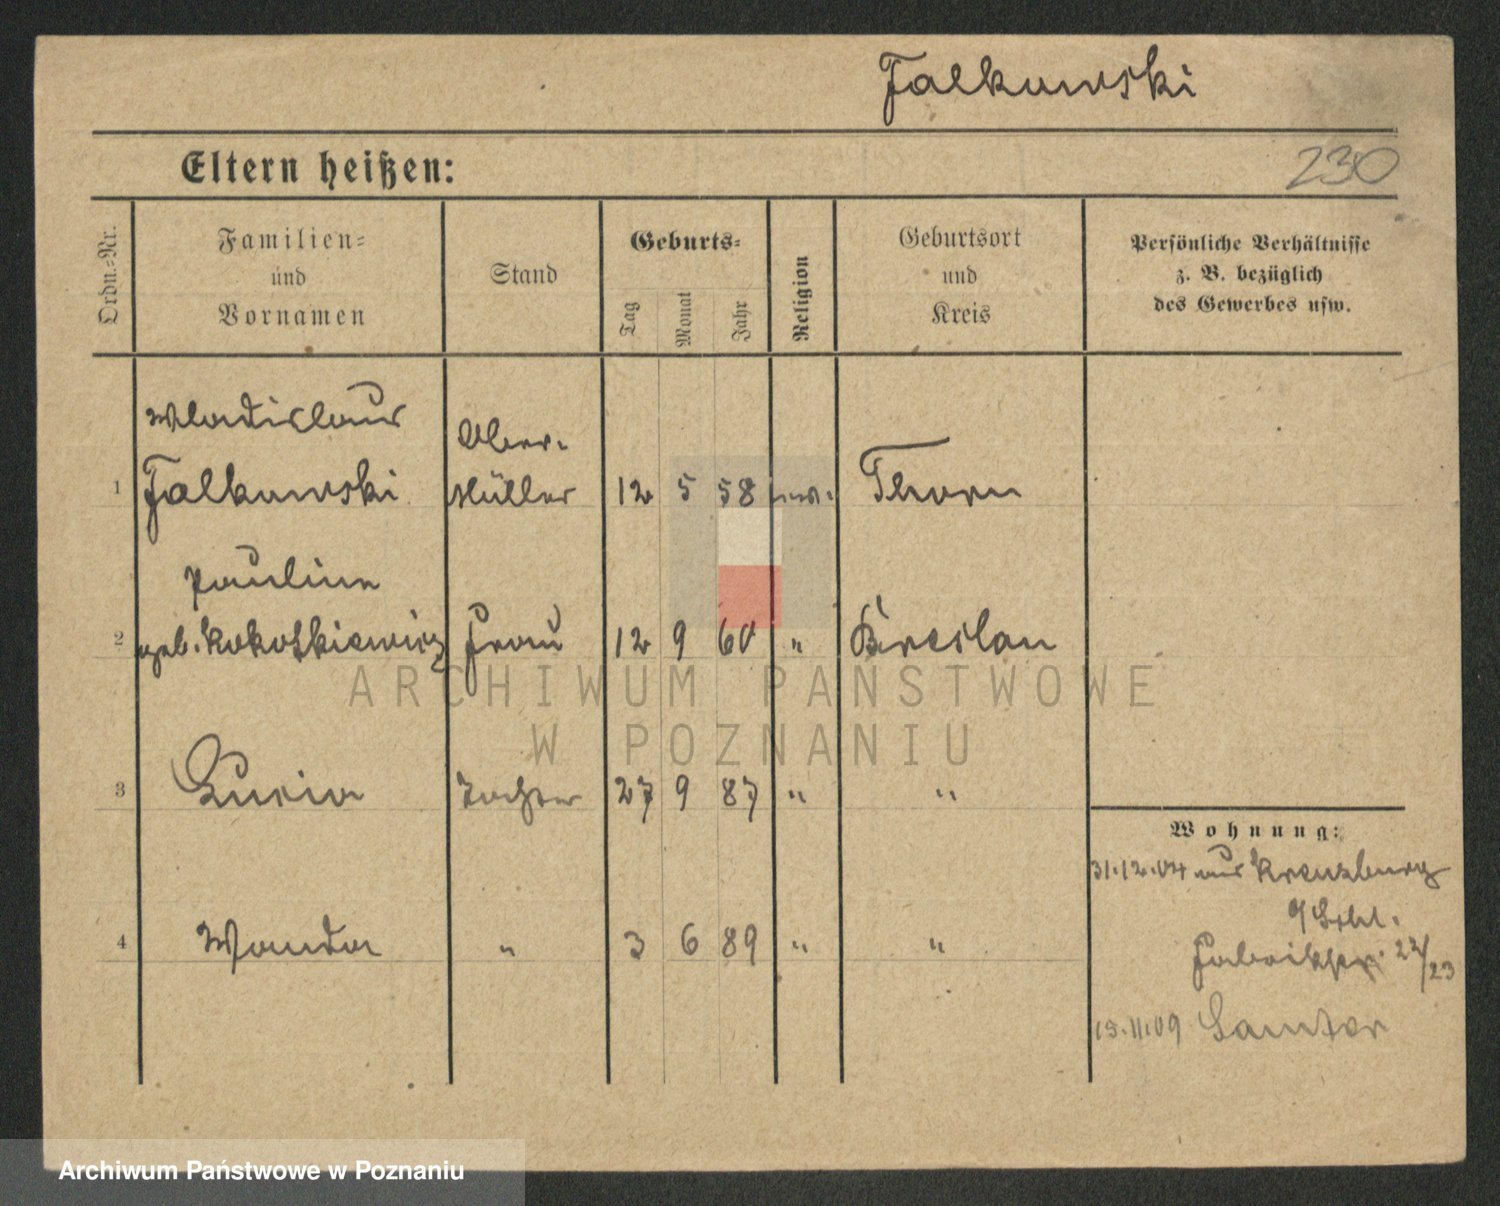 Falkowski
Eltern heißen:
230
Ordn.-Nr.
Familien-
und
Vornamen
Stand
Geburts-
Tag
Monat
Jahr
Religion
Geburtsort
und
Kreis
Persönliche Verhältnisse
z. B. bezüglich
des Gewerbes usw.
Wladislaus
Ober-
1 Falkowski Müller 12 5 58 Thorn
Pauline
2 geb. Kokotkiewicz Frau 12 9 60 " Breslau
ARCHIWUM PAŃSTWOWE
W POZNANIU
3 Lucia Tochter 27 9 87 " "
Wohnung:
31.12.04 aus Kreuzburg
4 Wanda " 3 6 89 " "
Fabrikstr. 22/23
15.11.09 Samter
Archiwum Państwowe w Poznaniu